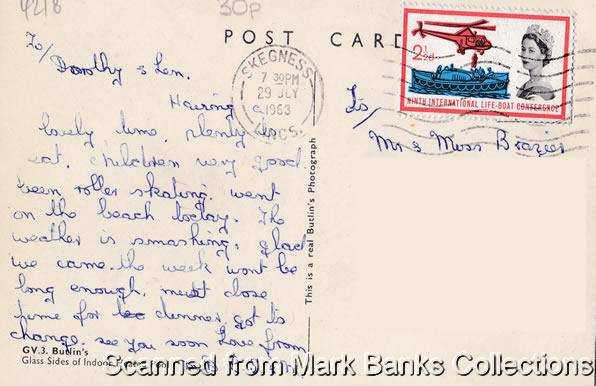 4218
30p
POST CARD
To/
Dorothy & Len.
Having a
lovely time, plenty to
eat, children very good
been roller skating. went
on the beach today. The
weather is smashing, glad
we came. the week wont be
long enough. must close
time for dinner, got to
change. see you soon Love from
GV.3. Butlin's
Glass Sides of Indoor
SKEGNESS
7 30PM
29 JLY
1963
LINCS.
This is a real Butlin's Photograph
2½d
NINTH INTERNATIONAL LIFE-BOAT CONFERENCE
To/
Mr & Mrss Brazier
Scanned from Mark Banks Collections